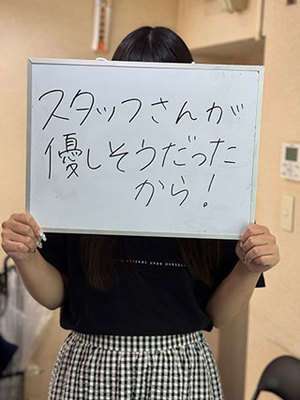 スタッフさんが
優しそうだった
から!